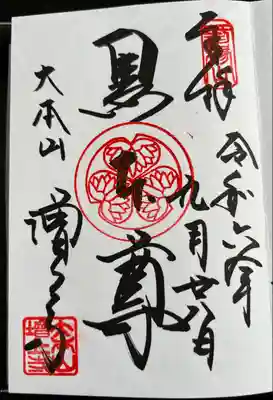 奉拝
令和六年
九月廿八日
黒本尊
大本山
増上寺